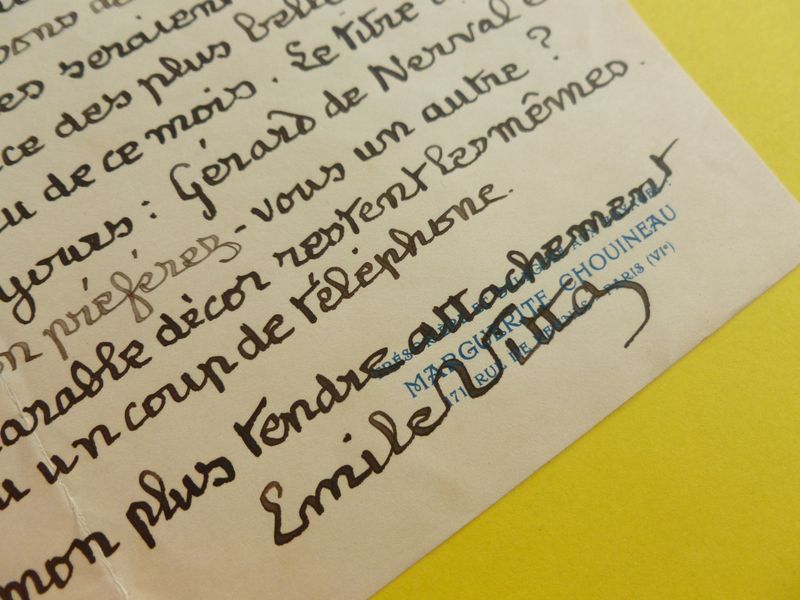 es seraient
ce des plus belle
u de ce mois. Le titre
yours : Gérard de Nerval
n préférez-vous un autre ?
arable décor restent les mêmes.
u un coup de téléphone.
mon plus tendre attachement
Emile Vitta
MARGUERITE CHOUINEAU
171, RUE DE PARIS (VIe)